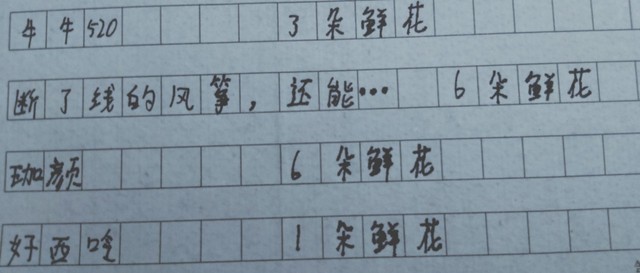 牛牛520 3朵鲜花
断了线的风筝，还能… 6朵鲜花
珈颜 6朵鲜花
好西哈 1朵鲜花